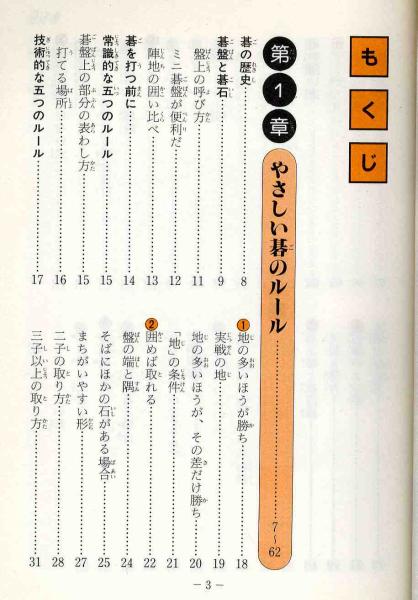 もくじ
第1章 やさしい碁のルール……7〜62
碁の歴史……8
碁盤と碁石……9
盤上の呼び方……11
ミニ碁盤が便利だ……12
陣地の囲い比べ……13
碁を打つ前に……14
常識的な五つのルール……15
碁盤上の部分の表わし方……15
打てる場所……16
技術的な五つのルール……17
①地の多いほうが勝ち……18
実戦の地……19
地の多いほうが、その差だけ勝ち……20
「地」の条件……21
②囲めば取れる……22
盤の端と隅……24
そばにほかの石がある場合……25
まちがいやすい形……27
二子の取り方……28
三子以上の取り方……31
—3—